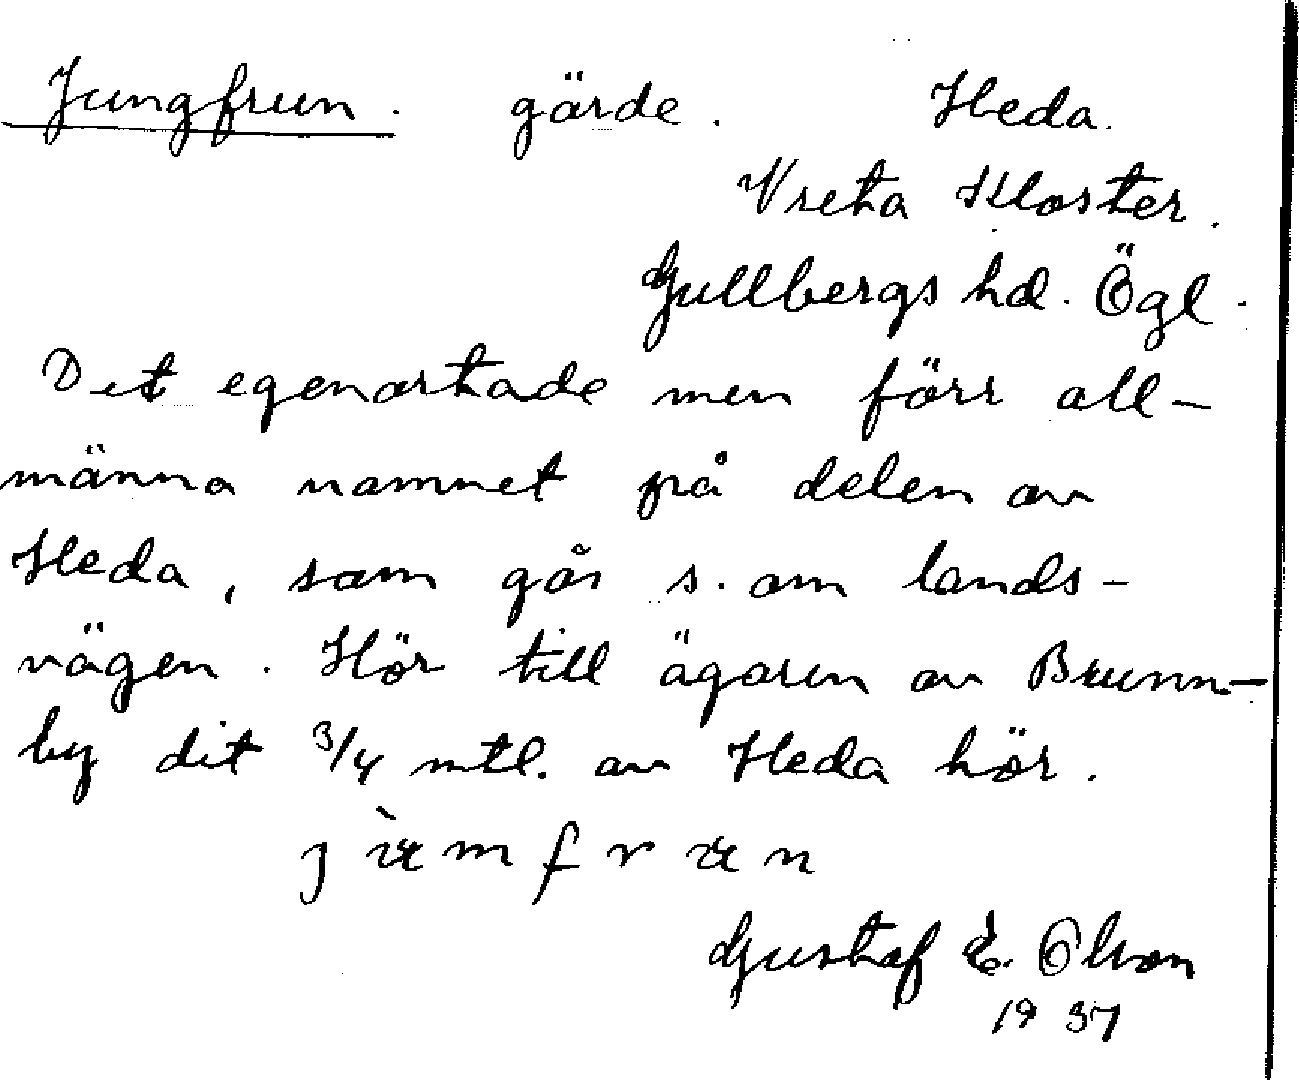 Jungfrun. gärde. Heda.
Vreta Kloster.
Gullbergs hd. Ögl.
Det egenartade men förr all-
männa namnet på delen av
Heda, som går s. om lands-
vägen. Hör till ägaren av Brunn-
by dit 3/4 mtl. av Heda hör.
Gustaf E. Olson
1937